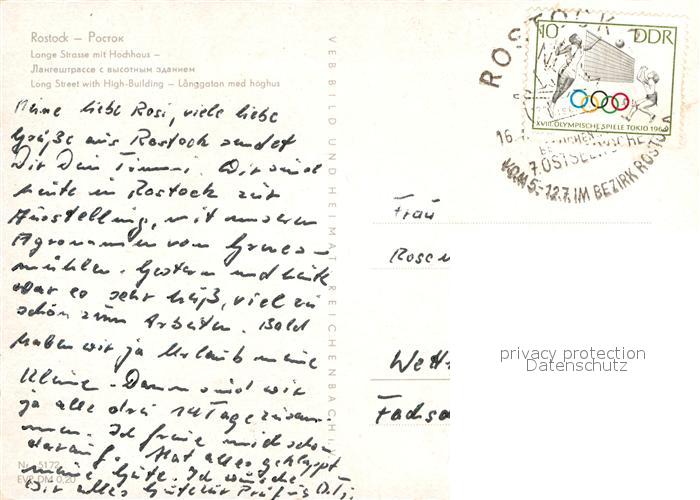 Rostock — Росток
Lange Strasse mit Hochhaus —
Лангештрассе с высотным зданием
Long Street with High-Building — Långgatan med höghus
Meine liebe Rosi, viele liebe
Grüße aus Rostock sendet
Dir Dein Wir sind
heute in Rostock zur
Ausstellung, mit unseren
Agronomen von Greves-
mühlen. Gestern und heute
war es sehr heiß, viel zu
schön zum Arbeiten. Bald
haben wir ja Urlaub meine
Kleine. Dann sind wir
ja alle drei 14 Tage zusam-
men. Ich freue mich schon
darauf. Hat alles geklappt
meine Gute. Ich wünsche
Dir alles Gute zur Prüfung
Nr. 5172
EVP DM 0,20
VEB BILD UND HEIMAT REICHENBACH
ROSTOCK
10 DDR
XVIII. OLYMPISCHE SPIELE TOKIO 1964
16.
7. OSTSEEWOCHE
VOM 5.-12.7. IM BEZIRK ROSTOCK
Frau
Rose
Wett
Fachs
privacy protection
Datenschutz